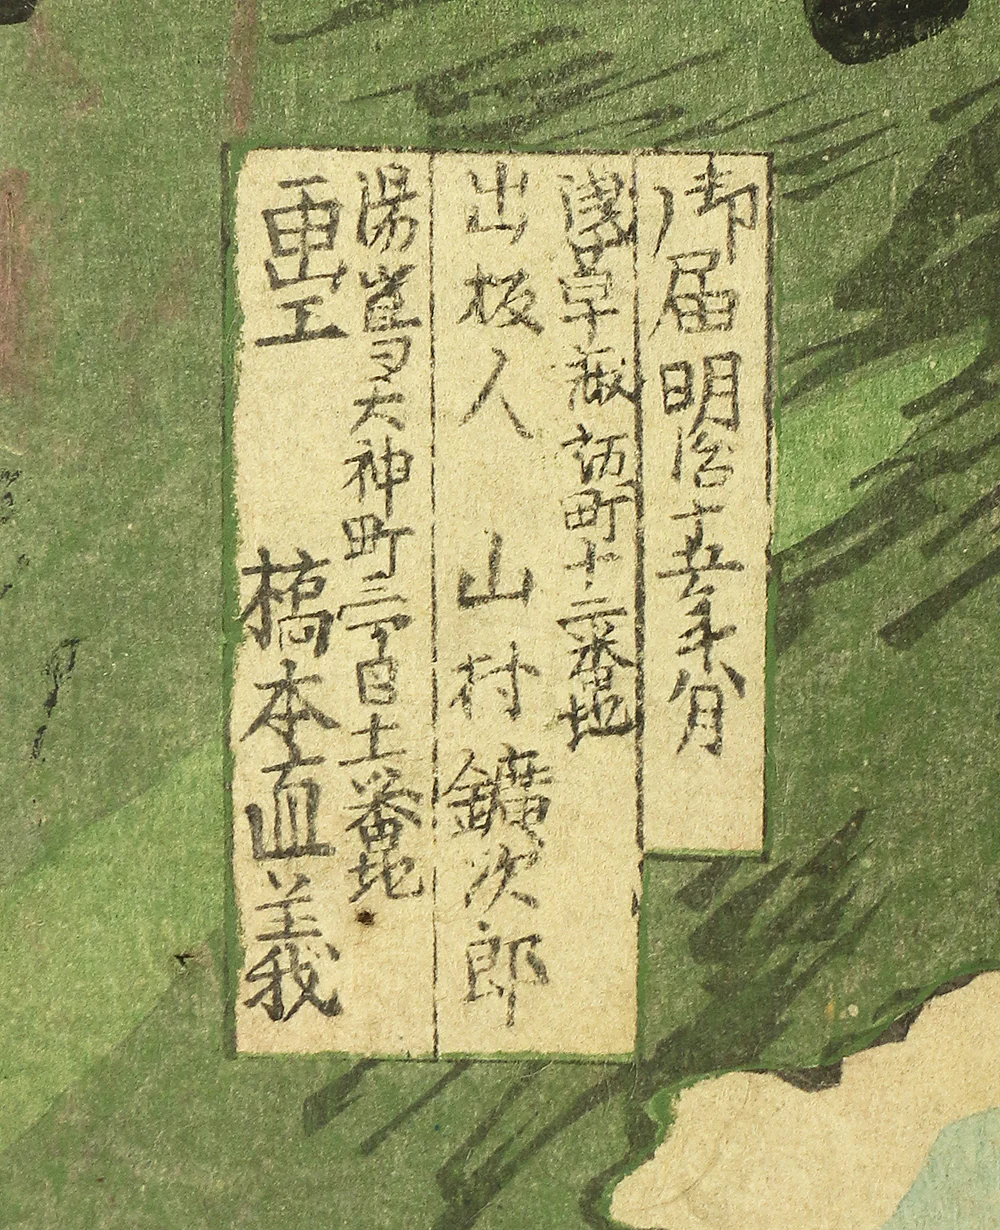 御届明治十五年 月
淺草諏訪町十二番地
出板人 山村鑛次郎
湯嶌天神町三丁目十一番地
画工 橋本直義